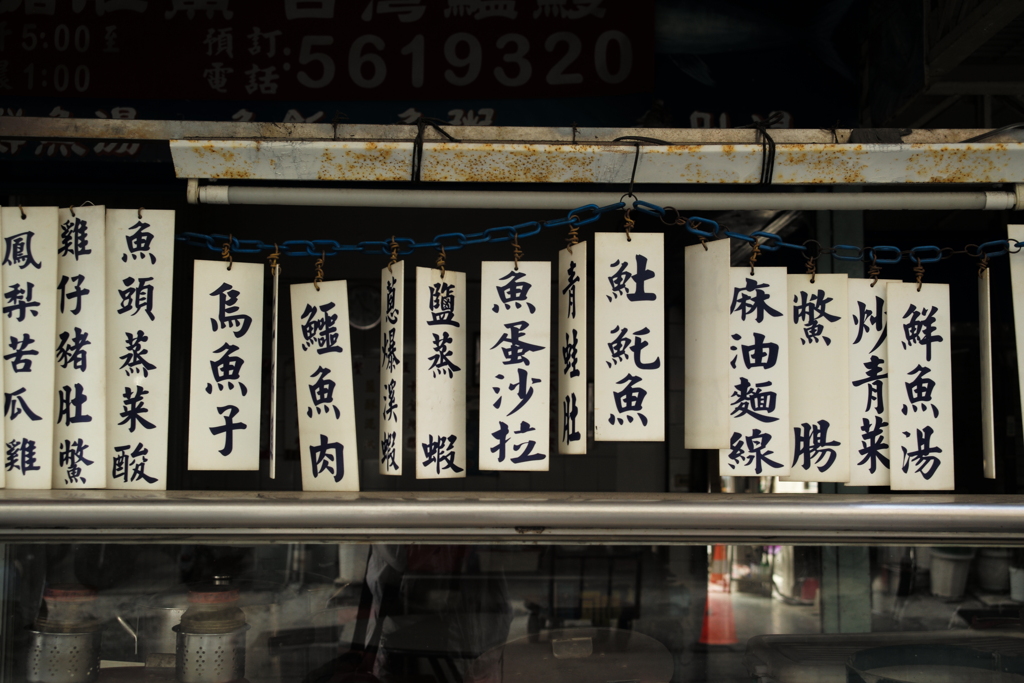 台灣鱸鰻
5:00至
1:00
預訂
電話:5619320
鳳梨苦瓜雞
雞仔豬肚鱉
魚頭蒸菜酸
烏魚子
鱷魚肉
蔥爆溪蝦
鹽蒸蝦
魚蛋沙拉
青蛙肚
魠魚
麻油麵線
鱉腸
炒青菜
鮮魚湯